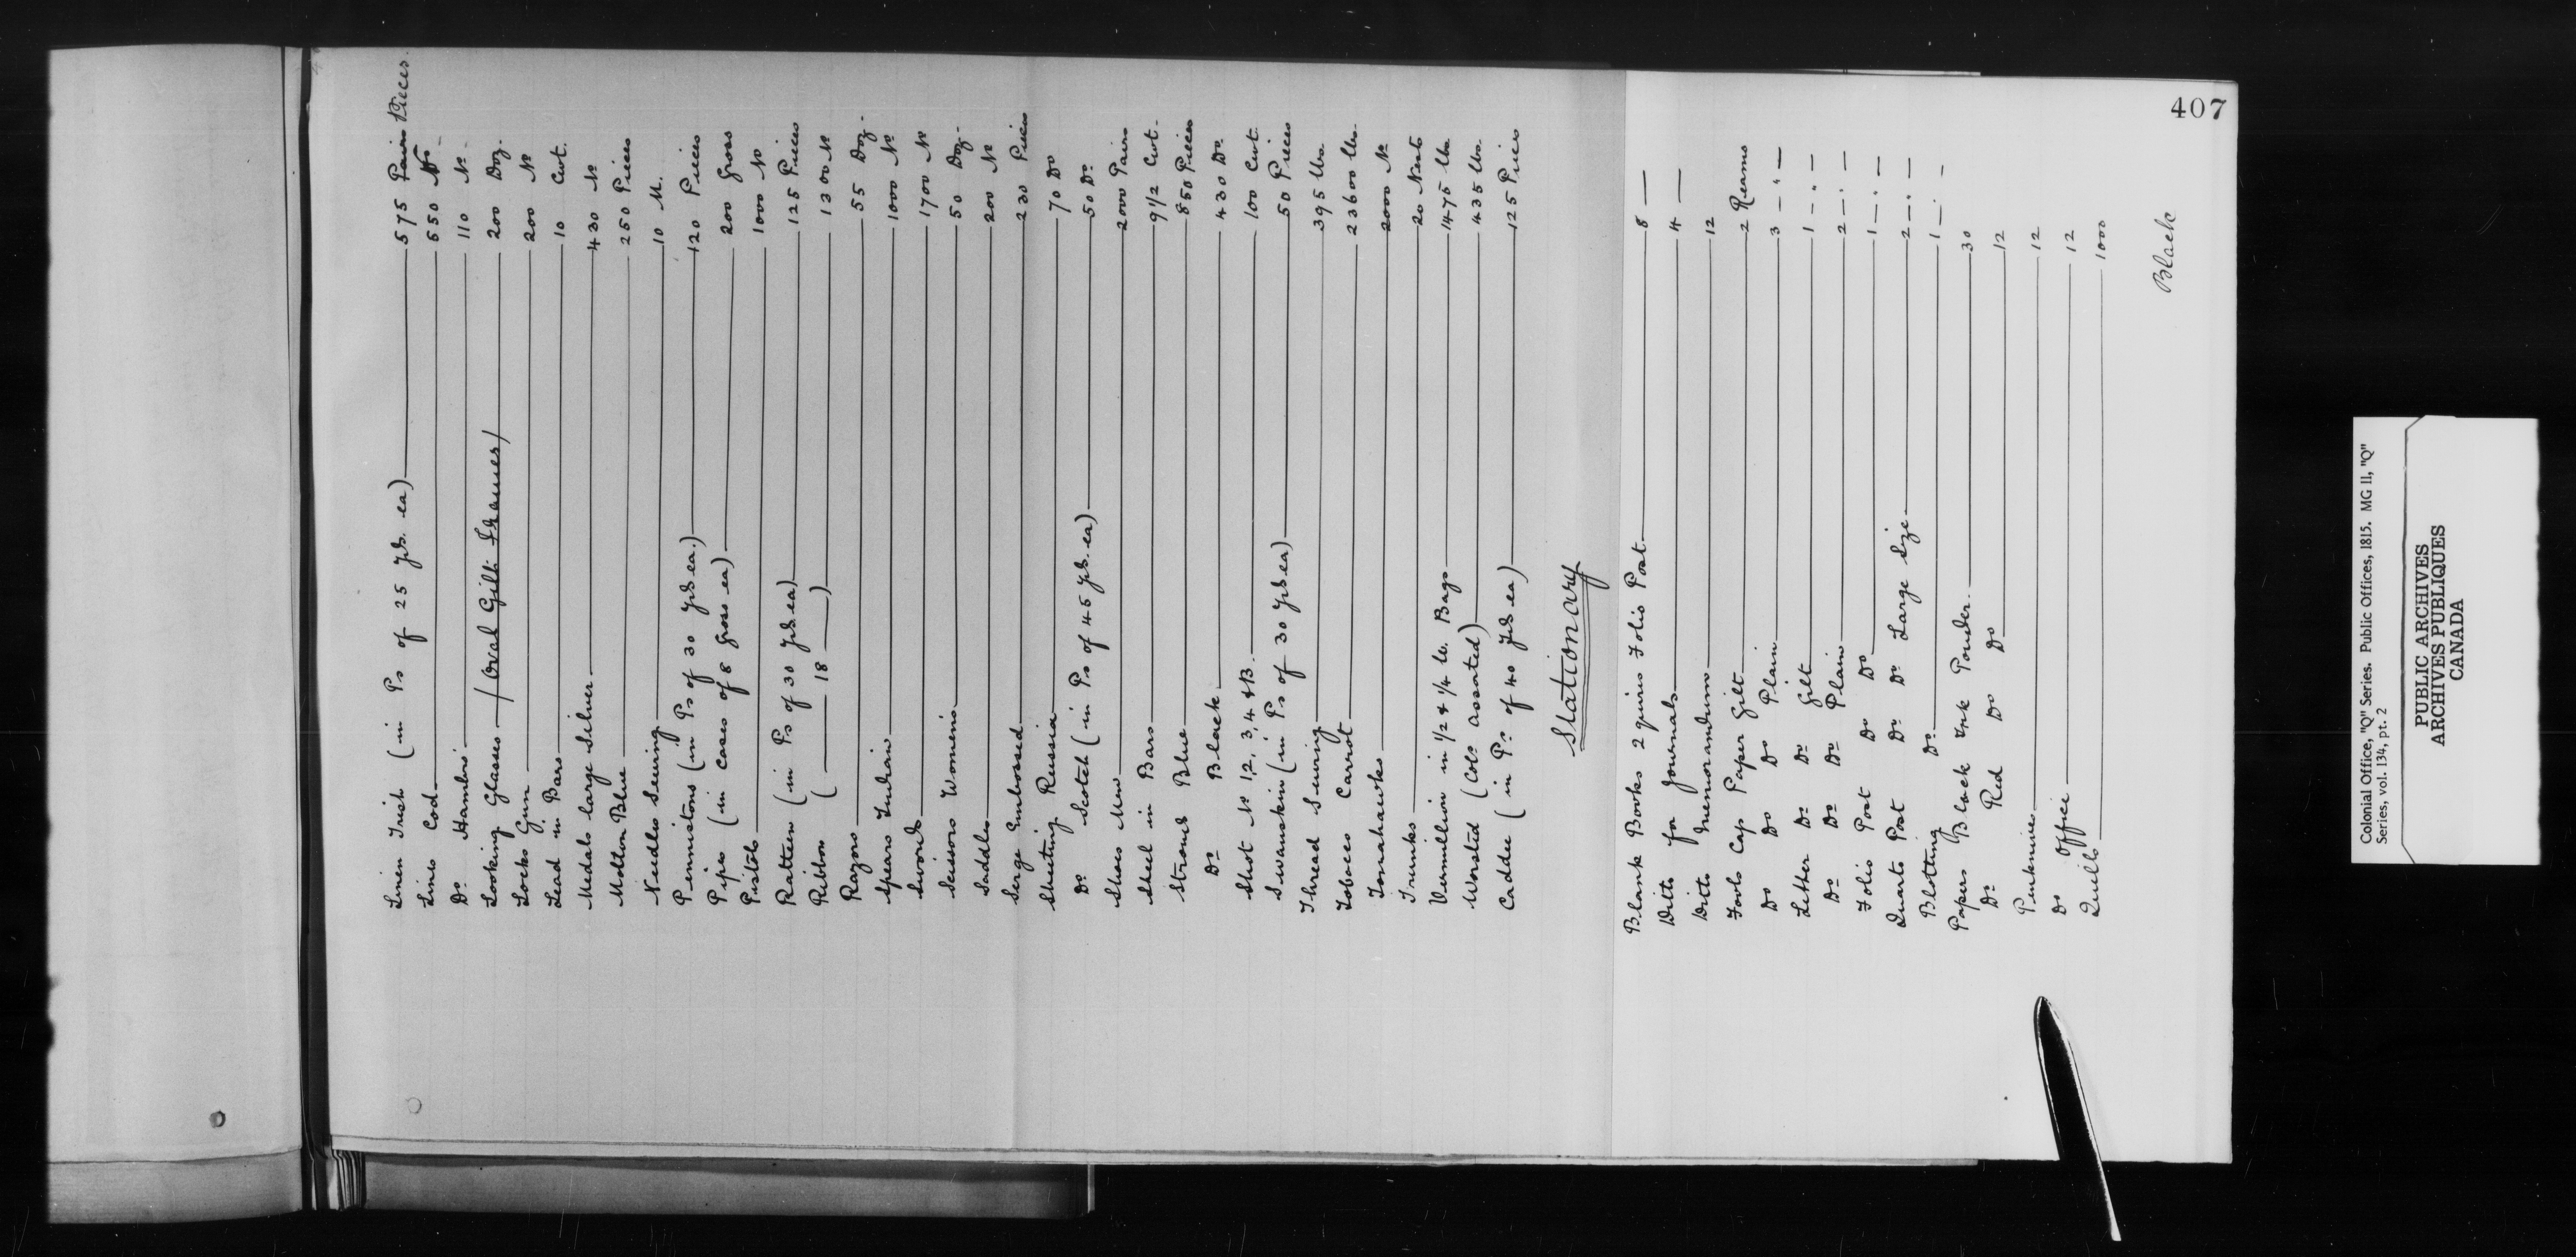 407
Linen Irish (in Ps of 25 yds. ea) 575 Pairs Pieces
Lines Cod 550 No
Do Hambro 110 No
Looking Glasses (Oval Gilt Frames) 200 Doz.
Locks Gun 200 No
Lead in Bars 10 Cwt.
Medals large Silver 430 No
Molton Blue 250 Pieces
Needles Sewing 10 M.
Pennistons (in Ps of 30 yds ea.) 120 Pieces
Pipes (in cases of 8 Gross ea) 200 Gross
Pistols 1000 No
Ratteen (in Ps of 30 yds ea) 125 Pieces
Ribbon ( — 18 — ) 1300 No
Razors 55 Doz.
Spears Indian 1000 No
Swords 1700 No
Scissors Womens 50 Doz.
Saddles 200 No
Serge Embossed 230 Pieces
Sheeting Russia 70 Do
Do Scotch (in Ps of 45 yds. ea) 50 Do
Shoes Mens 2000 Pairs
Steel in Bars 9 1/2 Cwt.
Stroud Blue 850 Pieces
Do Black 430 Do
Shot No 1, 2, 3, 4 & B. 100 Cwt.
Swanskin (in Ps of 30 yds ea) 50 Pieces
Thread Sewing 395 lbs.
Tobacco Carrot 23600 lbs.
Tomahawks 2000 No
Trunks 20 Nests
Vermillion in 1/2 & 1/4 lb. Bags 1475 lbs
Worsted (Cols assorted) 435 lbs.
Caddee (in Ps of 40 yds ea) 125 Pieces
Stationary
Blank Books 2 quires Folio Post 8 —
Ditto for Journals 4 —
Ditto Memorandum 12
Fools Cap Paper Gilt 2 Reams
Do Do Do Plain 3 — " —
Letter Do Do Gilt 1 — " —
Do Do Do Plain 2 — " —
Folio Post Do Do 1 — " —
Quarto Post Do Do Large Size 2 — " —
Blotting Do 1 — " —
Papers Black Ink Powder 30
Do Red Do Do 12
Penknives 12
Do Office 12
Quills 1000
Black
Colonial Office, "Q" Series. Public Offices, 1815. MG 11, "Q"
Series, vol. 134, pt. 2
PUBLIC ARCHIVES
ARCHIVES PUBLIQUES
CANADA